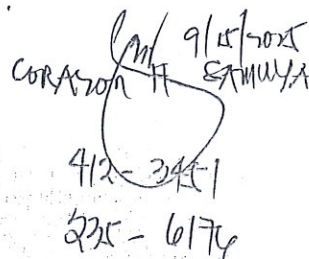 9/15/2025
CORAZON H SAMUYA
412-3451
235-6174